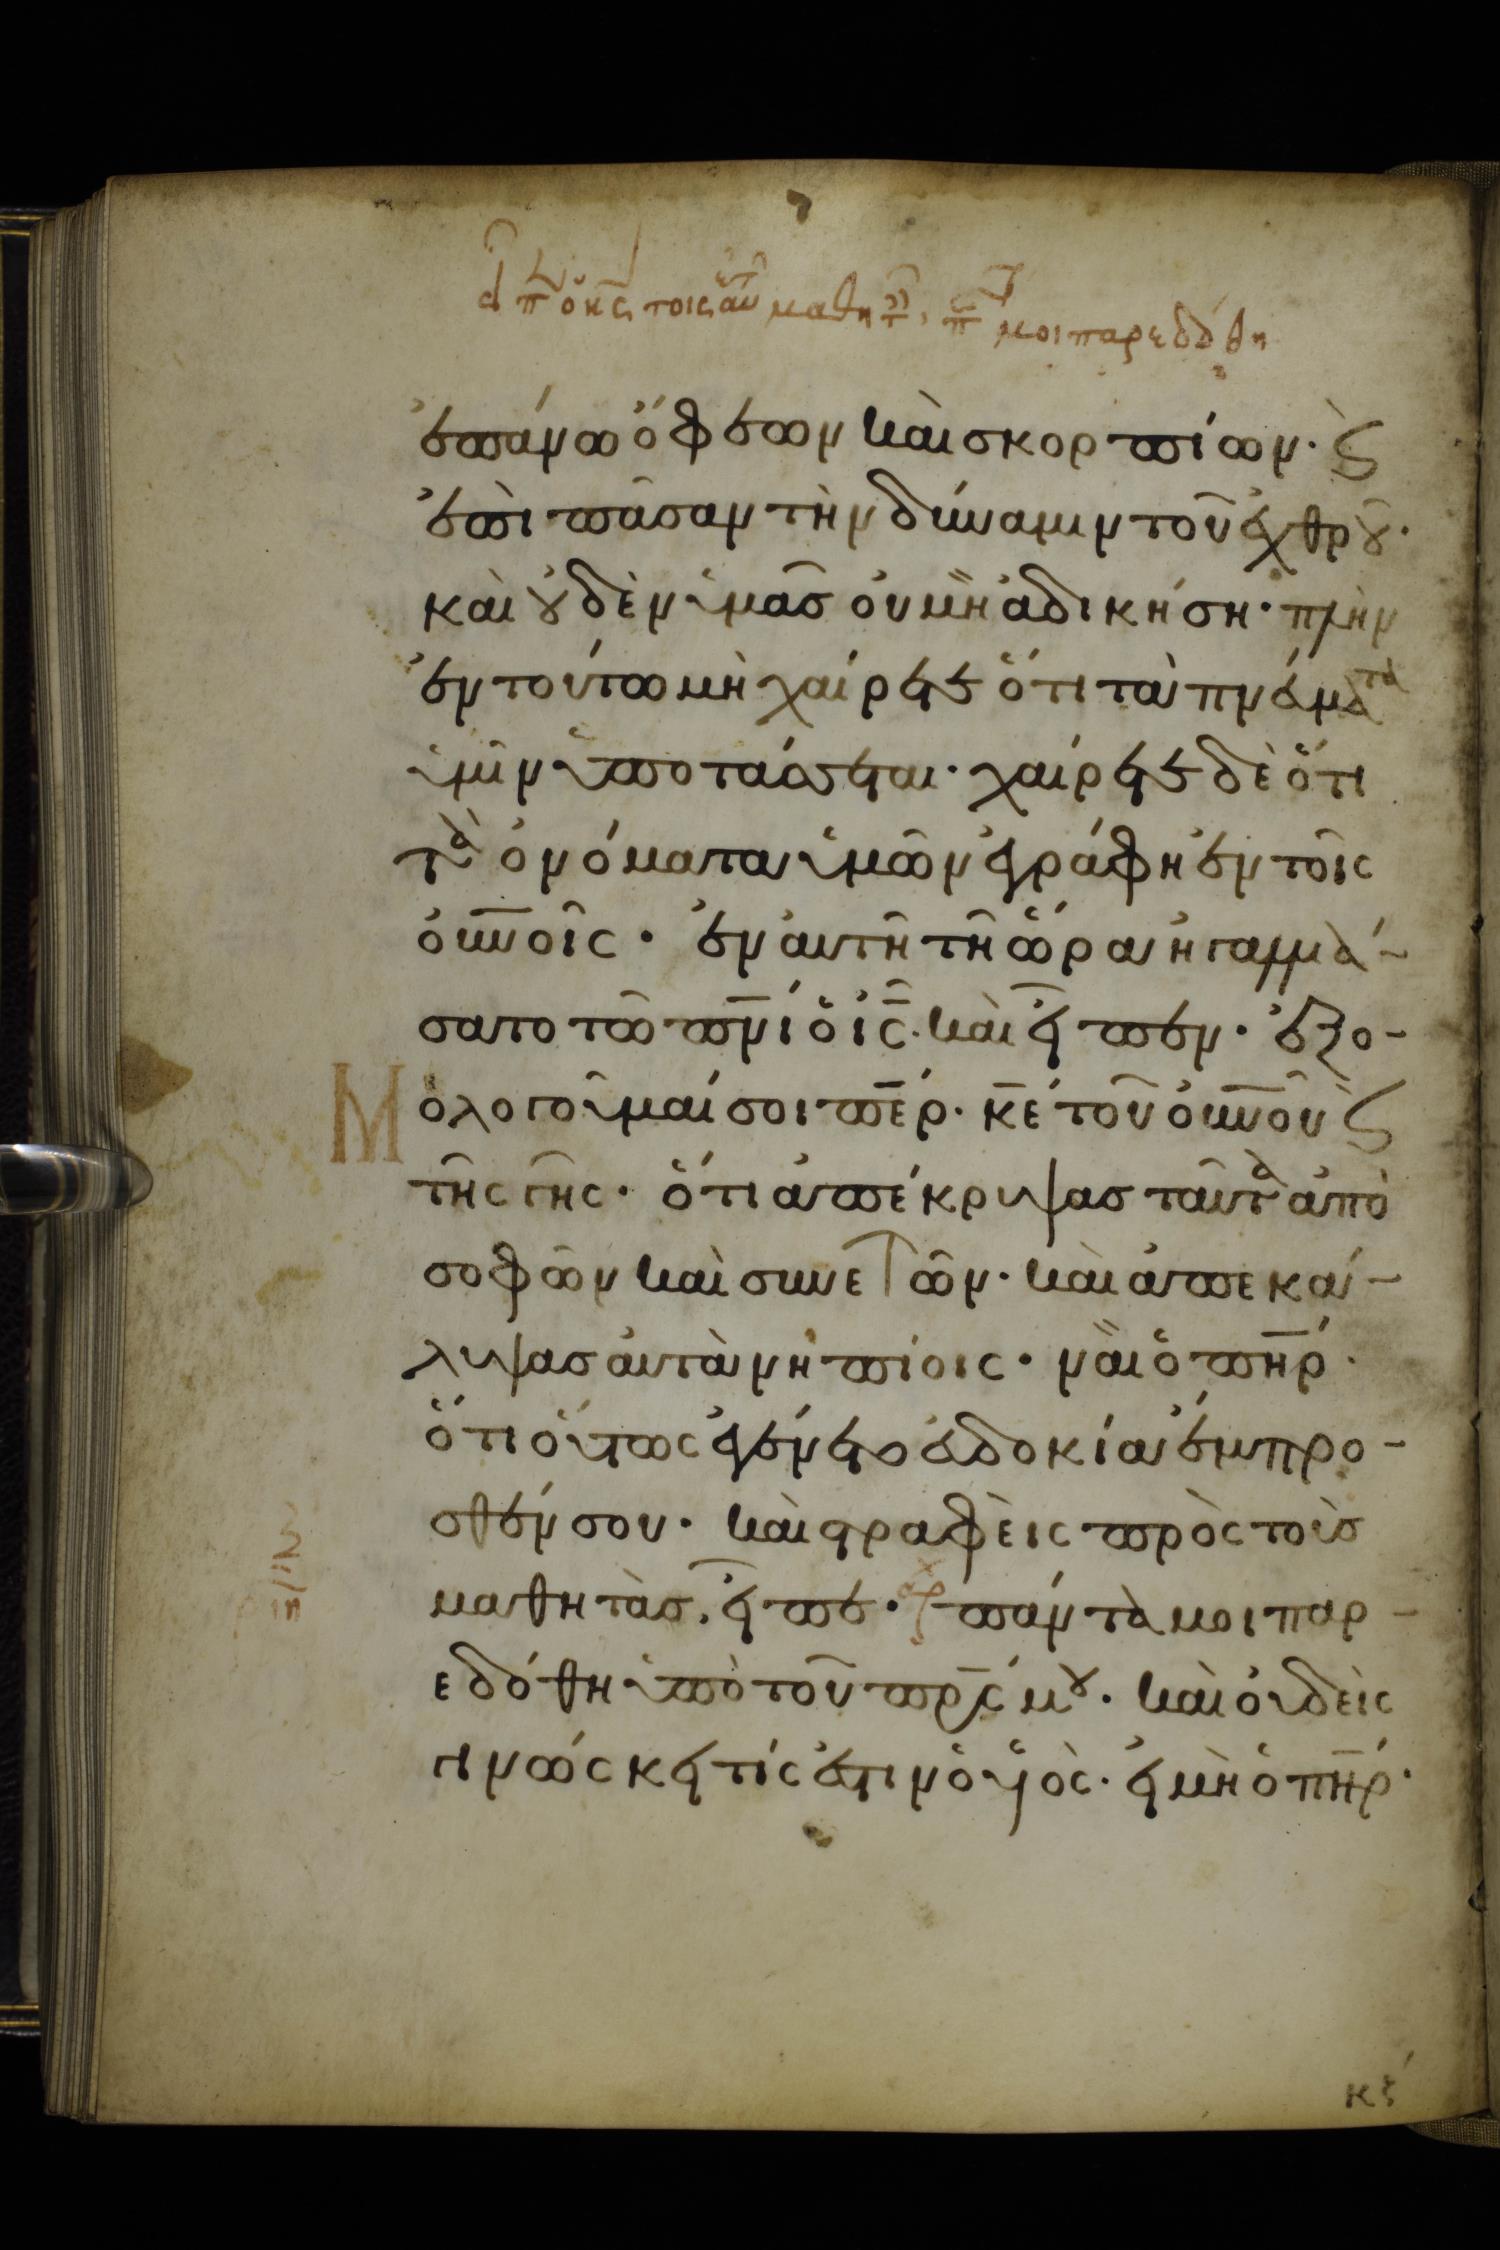 εἶπεν ὁ κς τοῖς ἑαυτοῦ μαθητ πάντα μοι παρεδόθη
ἐπάνω ὄφεων καὶ σκορπίων· ϛ
ἐπὶ πᾶσαν τὴν δύναμιν τοῦ ἐχθρȣ͂·
καὶ ȣ̓δὲν ὑμᾶσ οὐ μὴ ἀδικήση· πλὴν
ἐν τούτω μὴ χαίρετε ὅτι τὰ πνεύματα
ὑμῖν ὑποτάσσεται· χαίρετε δὲ ὅτι
τὰ ὀνόματα ὑμῶν ἐγράφη ἐν τοῖς
οὐνοῖς· ἐν αὐτῆ τῆ ὥρα ἠγαλλιά-
σατο τῶ πνί ὁ ἰς· καὶ εἶπεν· ἐξο-
Μολογοῦμαί σοι περ· κε τοῦ οὐνοῦ ϛ
τῆς γῆς· ὅτι ἀπέκρυψασ ταῦτα ἀπὸ
σοφῶν καὶ συνετῶν· καὶ ἀπεκά-
λυψασ αὐτὰ νηπίοις· ναὶ ὁ πηρ·
ὅτι οὕτως ἐγένετο εὐδοκία ἔμπρο-
σθέν σου· καὶ στραφεὶς πρὸς τοὺσ
μαθητὰσ. εἶπε· αρχ πάντα μοι παρ-
εδόθη ὑπὸ τοῦ πρς μȣ· καὶ οὐδεὶς
γινώσκει τίς ἐστιν ὁ υἱὸς· εἰ μὴ ὁ πηρ·
κξ